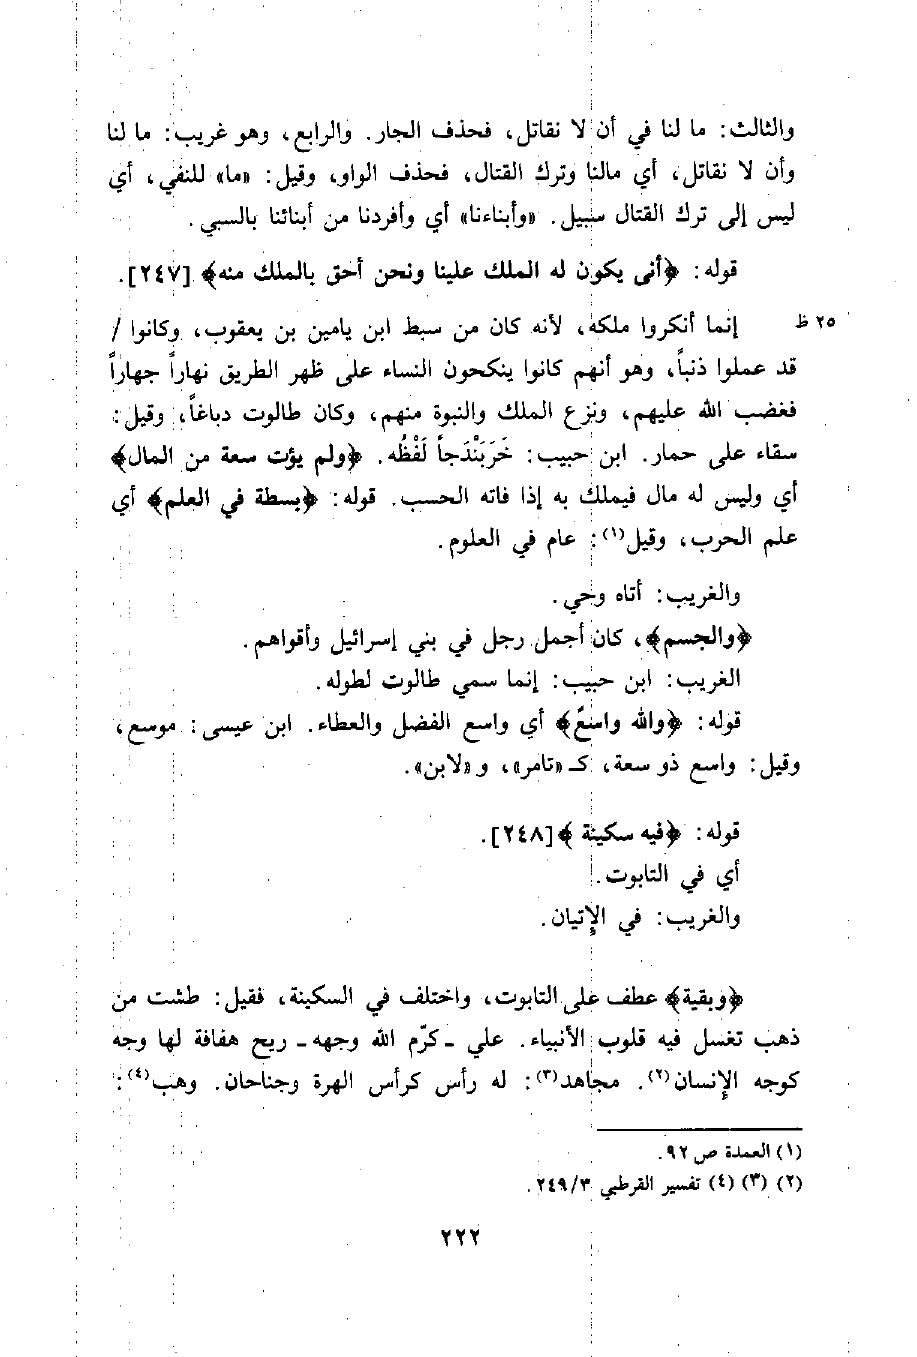 والثالث: ما لنا في أن لا نقاتل، فحذف الجار. والرابع، وهو غريب: ما لنا
وأن لا نقاتل، أي مالنا وترك القتال، فحذف الواو، وقيل: «ما» للنفي، أي
ليس إلى ترك القتال سبيل. «وأبناءنا» أي وأفردنا من أبنائنا بالسبي.
قوله: ﴿أنى يكون له الملك علينا ونحن أحق بالملك منه﴾ [٢٤٧].
٢٥ ظ إنما أنكروا ملكه، لأنه كان من سبط ابن يامين بن يعقوب، وكانوا /
قد عملوا ذنباً، وهو أنهم كانوا ينكحون النساء على ظهر الطريق نهاراً جهاراً
فغضب الله عليهم، ونزع الملك والنبوة منهم، وكان طالوت دباغاً، وقيل:
سقاء على حمار. ابن حبيب: خَرَبَنْدَجاً لَفْظُه. ﴿ولم يؤت سعة من المال﴾
أي وليس له مال فيملك به إذا فاته الحسب. قوله: ﴿بسطة في العلم﴾ أي
علم الحرب، وقيل(١): عام في العلوم.
والغريب: أتاه وحي.
﴿والجسم﴾، كان أجمل رجل في بني إسرائيل وأقواهم.
الغريب: ابن حبيب: إنما سمي طالوت لطوله.
قوله: ﴿والله واسعٌ﴾ أي واسع الفضل والعطاء. ابن عيسى: موسع،
وقيل: واسع ذو سعة، كـ «تامر»، و «لابن».
قوله: ﴿فيه سكينة ﴾[٢٤٨].
أي في التابوت.
والغريب: في الإتيان.
﴿وبقية﴾ عطف على التابوت، واختلف في السكينة، فقيل: طشت من
ذهب تغسل فيه قلوب الأنبياء. علي ـ كرّم الله وجهه ـ ريح هفافة لها وجه
كوجه الإنسان(٢). مجاهد(٣): له رأس كرأس الهرة وجناحان. وهب(٤):
(١) العمدة ص ٩٢.
(٢) (٣) (٤) تفسير القرطبي ٢٤٩/٣.
٢٢٢